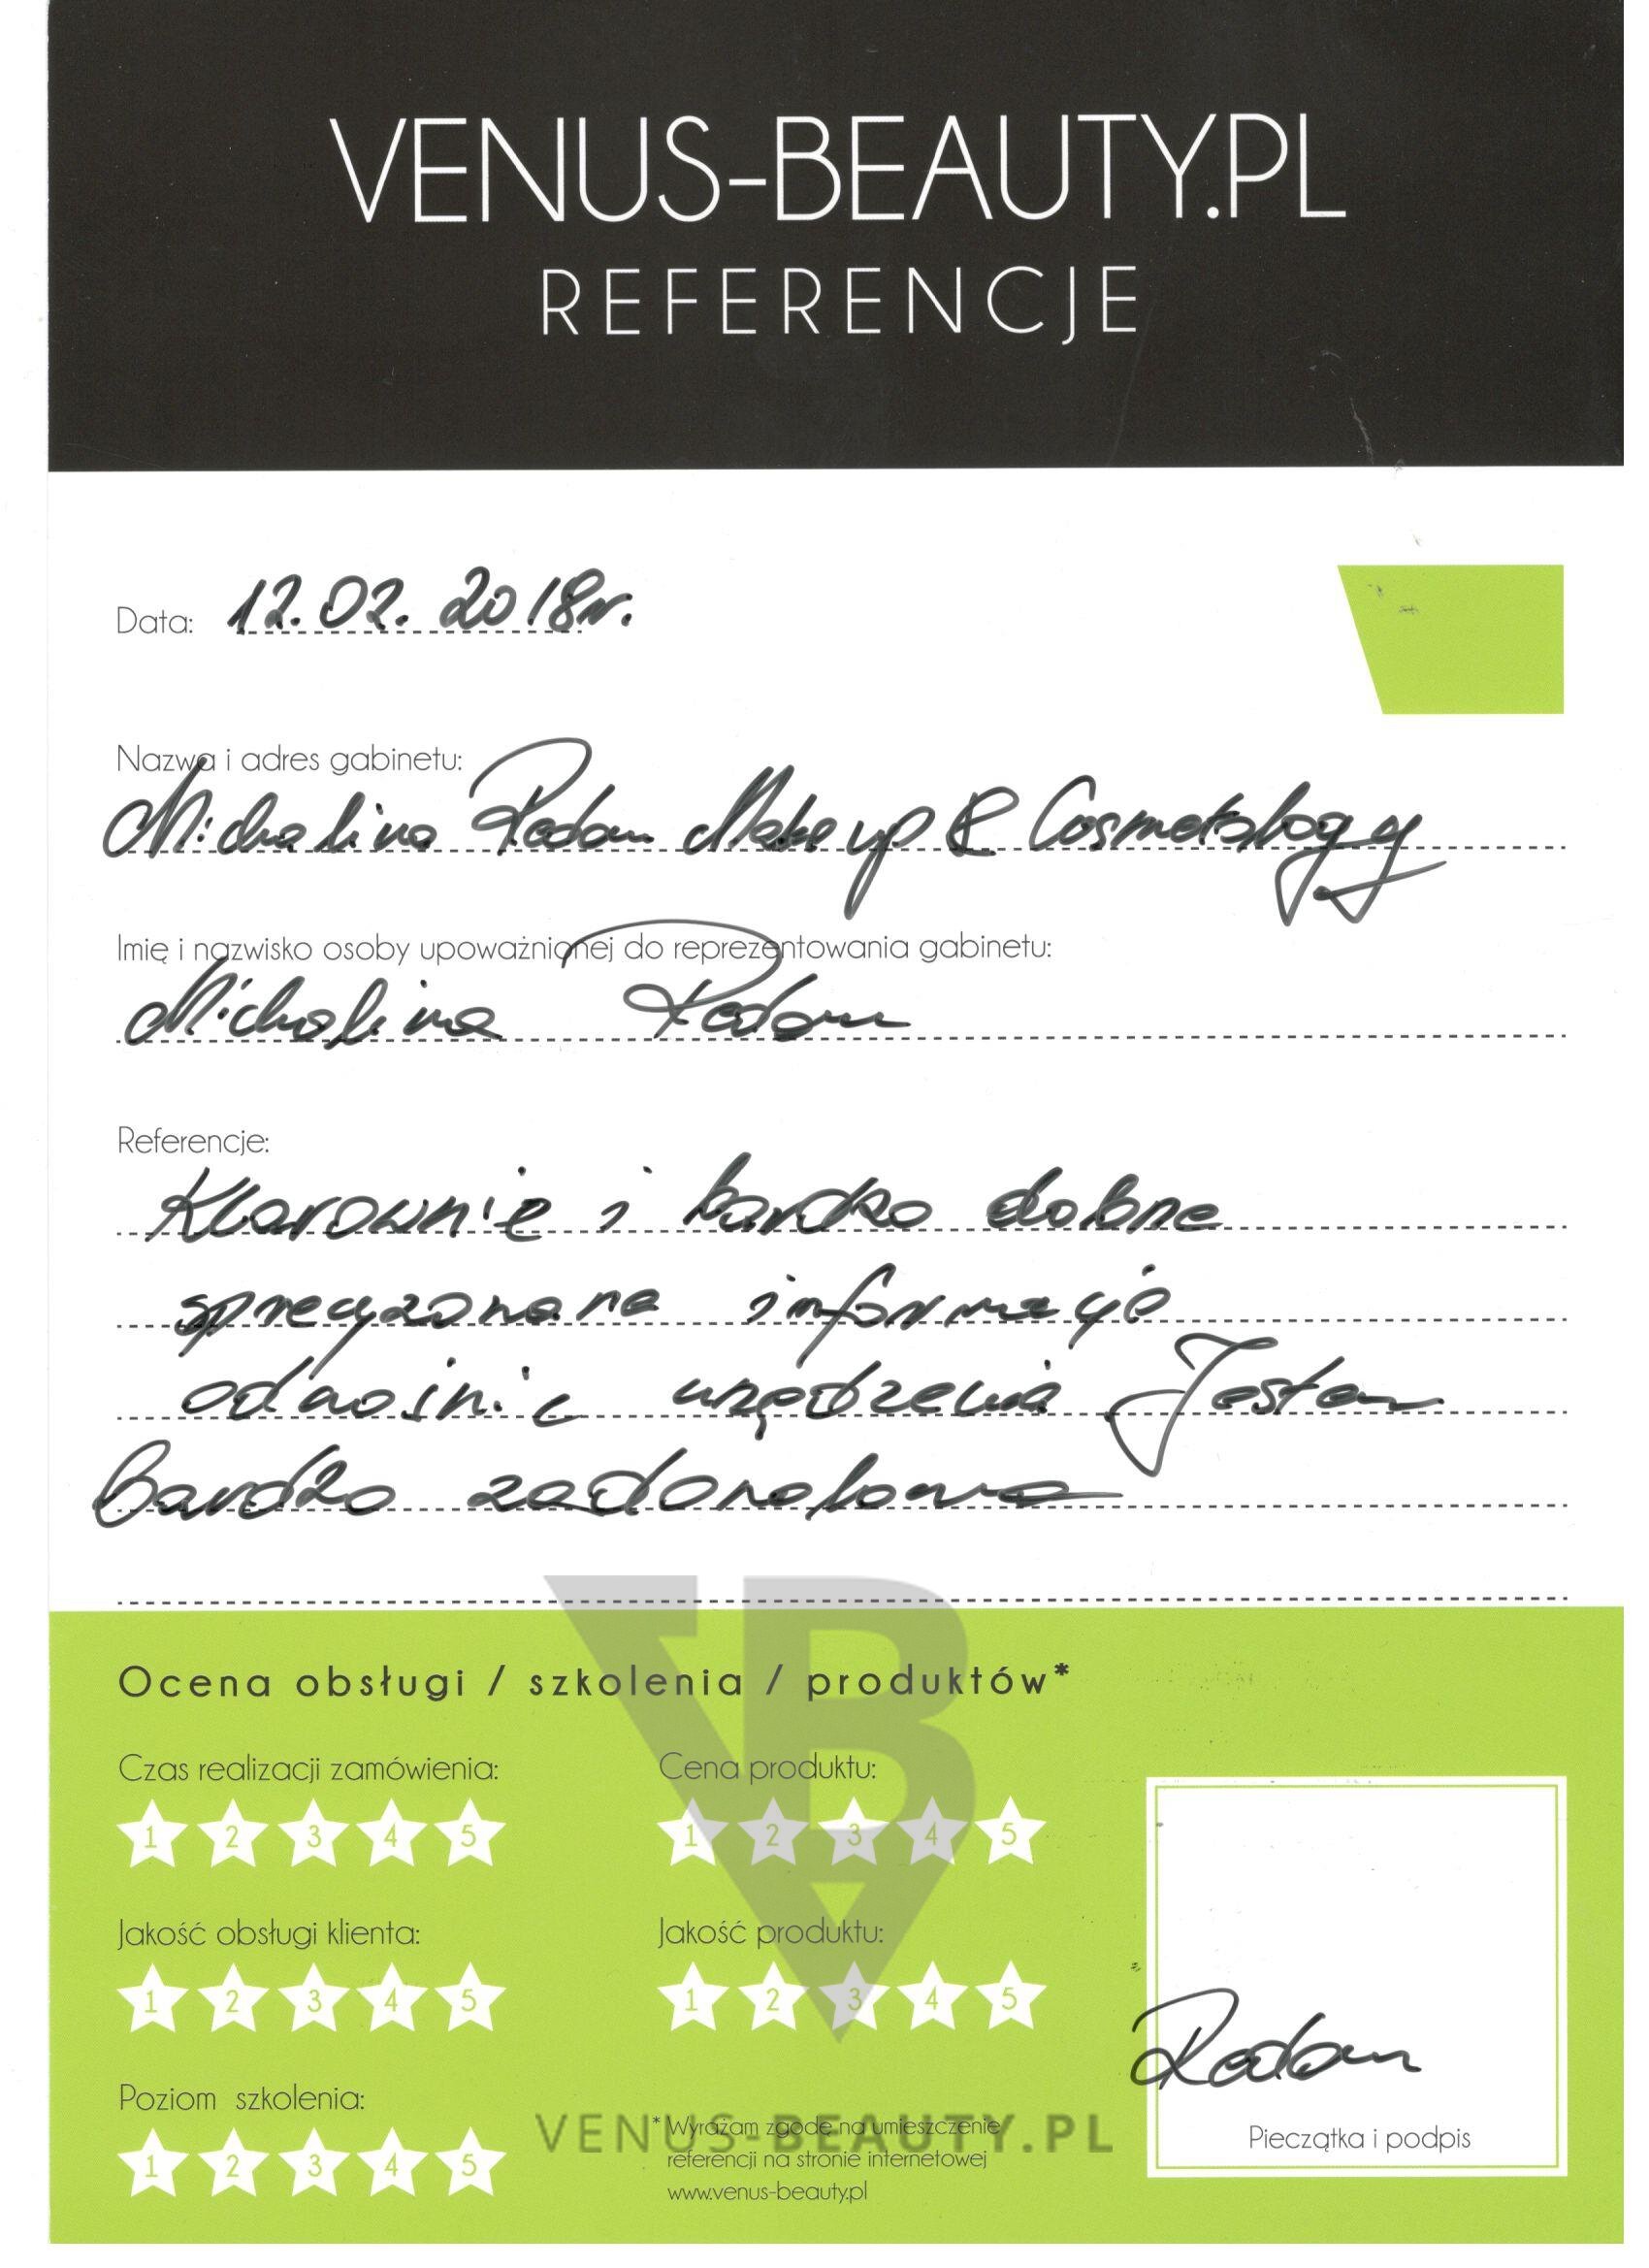 VENUS-BEAUTY.PL
REFERENCJE
Data: 12.02.2018r.
Nazwa i adres gabinetu:
Michalina Radom Make up & Cosmetology
Imię i nazwisko osoby upoważnionej do reprezentowania gabinetu:
Michalina Radom
Referencje:
Klarownie i bardzo dobrze
sprecyzowane informacje
odnośnie urządzenia Jestem
Bardzo zadowolowa
Ocena obsługi / szkolenia / produktów*
Czas realizacji zamówienia:
1 2 3 4 5
Cena produktu:
1 2 3 4 5
Jakość obsługi klienta:
1 2 3 4 5
Jakość produktu:
1 2 3 4 5
Poziom szkolenia:
1 2 3 4 5
* Wyrażam zgodę na umieszczenie
referencji na stronie internetowej
www.venus-beauty.pl
Radom
Pieczątka i podpis
VB
VENUS-BEAUTY.PL